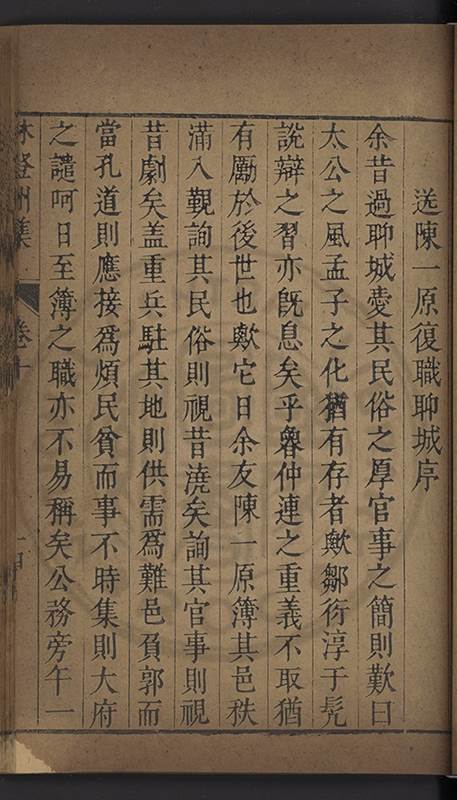 送陳一原復職聊城序
余昔過聊城愛其民俗之厚官事之簡則歎曰
太公之風孟子之化猶有存者歟鄒衍淳于髡
說辯之習亦旣息矣乎魯仲連之重義不取猶
有厲於後世也歟它日余友陳一原簿其邑秩
滿入覲詢其民俗則視昔澆矣詢其官事則視
昔劇矣盖重兵駐其地則供需爲難邑負郭而
當孔道則應接爲煩民貧而事不時集則大府
之譴呵日至簿之職亦不易稱矣公務旁午一
林登州集 卷十